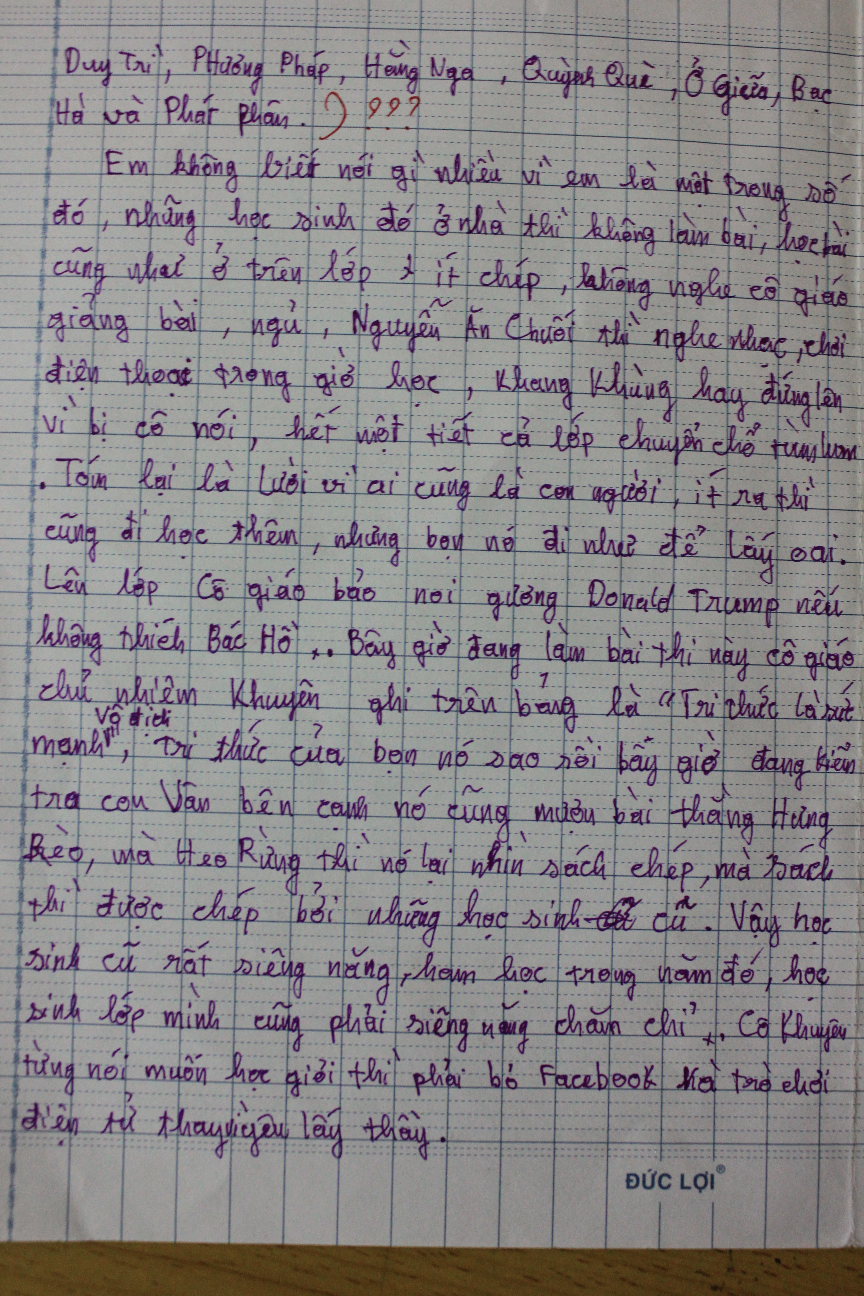 Duy Trì, Phương Pháp, Hằng Nga, Quỳnh Quê, Ở Giữa, Bạc
Hà và Phát phân. ) ???
Em không biết nói gì nhiều vì em là một trong số
đó, những học sinh đó ở nhà thì không làm bài, học bài
cũng như ở trên lớp ít chép, không nghe cô giáo
giảng bài, ngủ, Nguyễn Ăn Chuối thì nghe nhạc, chơi
điện thoại trong giờ học, Khang Khùng hay đứng lên
vì bị cô nói, hết một tiết cả lớp chuyển chỗ tùm lum
. Tóm lại là Lười vì ai cũng là con người, ít ra thì
cũng đi học thêm, nhưng bọn nó đi như để lấy oai.
Lên lớp Cô giáo bảo noi gương Donald Trump nếu
không thích Bác Hồ... Bây giờ đang làm bài thi này cô giáo
chủ nhiệm Khuyên ghi trên bảng là "Tri thức là sức
mạnh" vô địch, Tri thức của bọn nó sao rồi bây giờ đang kiểm
tra con Vân bên cạnh nó cũng mượn bài thằng Hưng
Rèo, mà Heo Rừng thì nó lại nhìn sách chép, mà sách
thì được chép bởi những học sinh cũ. Vậy học
sinh cũ rất siêng năng, ham học trong năm đó, học
sinh lớp mình cũng phải siêng năng chăm chỉ... Cô Khuyên
từng nói muốn học giỏi thì phải bỏ Facebook trò chơi
điện tử thay vì yêu lấy thầy.
ĐỨC LỢI®